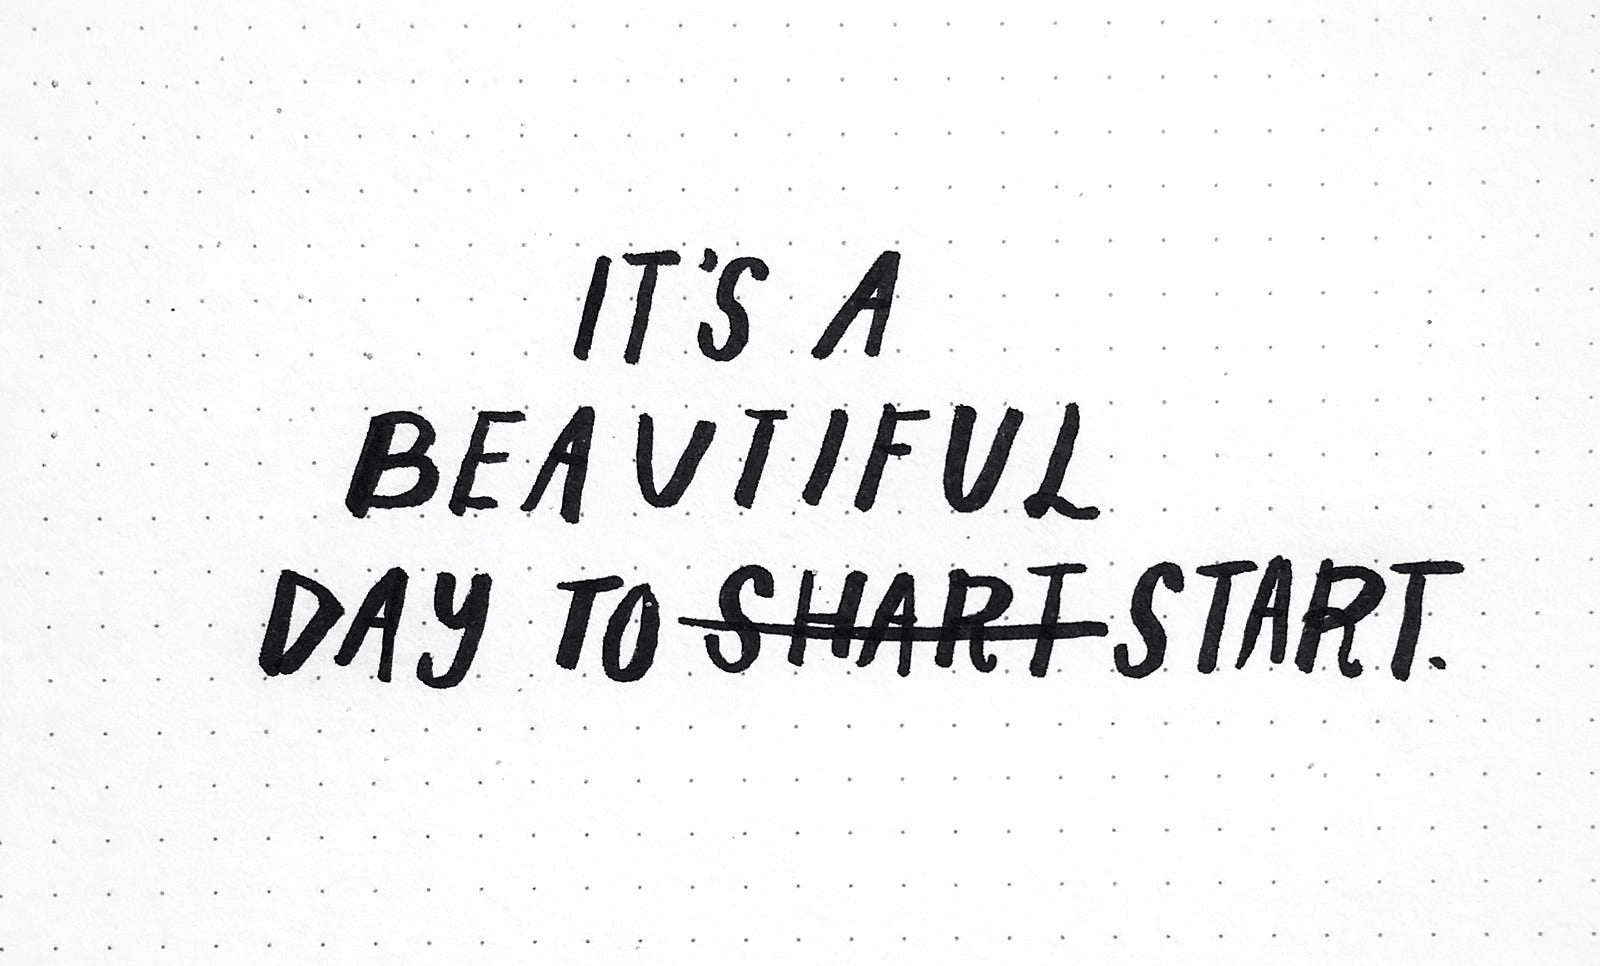 IT'S A
BEAUTIFUL
DAY TO SHART START.